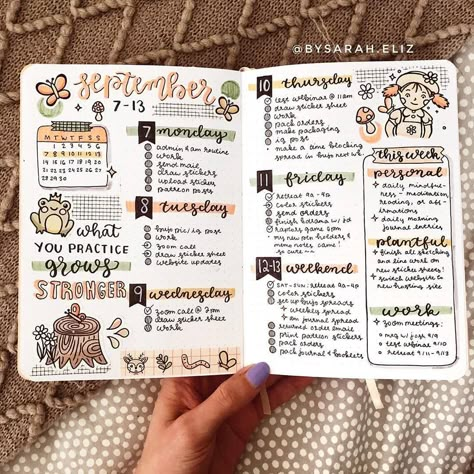 @BYSARAH.ELIZ
September
7-13
M T W T F S S
1 2 3 4 5 6
7 8 9 10 11 12 13
14 15 16 17 18 19 20
21 22 23 24 25 26 27
28 29 30
what
YOU PRACTICE
grows
STRONGER
7 monday
admin & am routine
work
send mail
draw stickers
upload stickers
patreon posts
8 tuesday
bujo pic/ig post
work
zoom call
draw sticker sheet
website updates
9 wednesday
zoom call @ 2pm
draw sticker sheet
work
10 thursday
test webinar @ 11am
draw sticker sheet
work
pack orders
make packaging
ig post
make a time blocking
spread in bujo next wk
11 friday
retreat 9a-4p
color stickers
send orders
raptors game 5pm
my new pen holders &
memo notes, came!
so cute
12-13 weekend
SAT-SUN: retreat 9a-4p
color stickers
set up bujo spreads
weekly spread
am journal spread
returned order emails
print patreon stickers
pack orders
pack journal & booklets
this week
personal
daily mindful-
ness - meditation
reading, or af-
firmations
daily morning
journal entries
plantful
finish all sketching
and line work on
new sticker sheets!
switch website to
new hosting site
work
zoom meetings:
test webinar 9/10
retreat 9/11-9/13